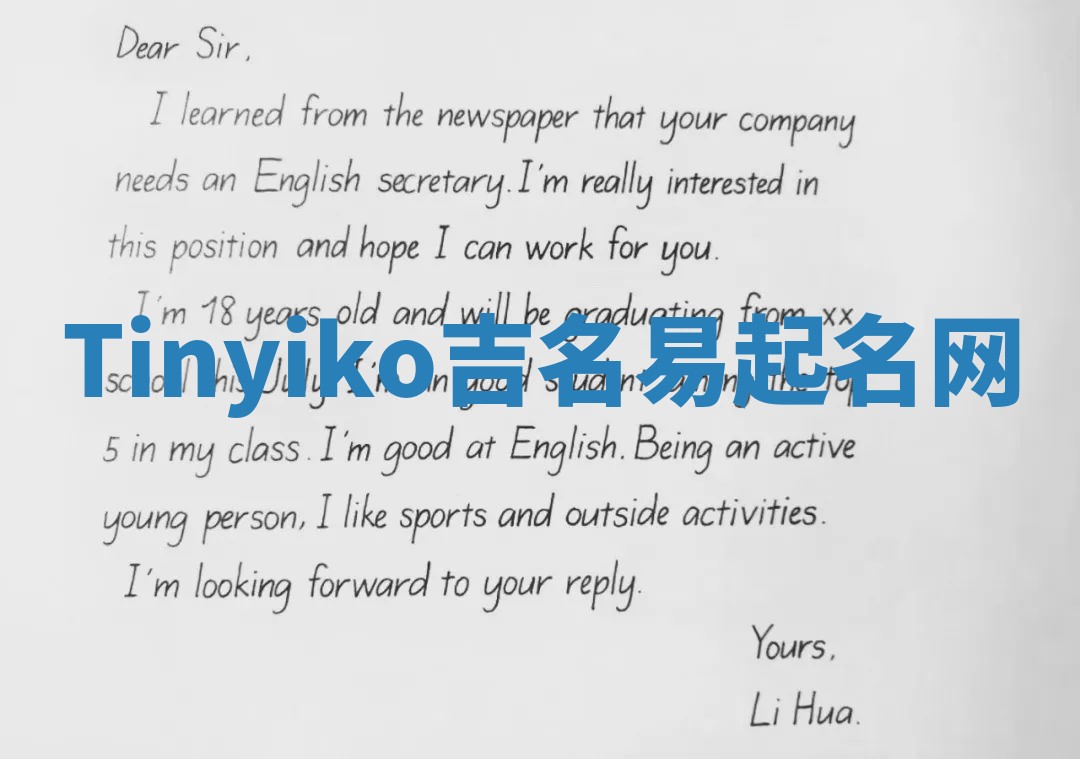 Dear Sir,
I learned from the newspaper that your company
needs an English secretary. I'm really interested in
this position and hope I can work for you.
I'm 18 years old and will be graduating from xx
Tinyiko吉名易起名网
school this July. I'm an good student among the top
5 in my class. I'm good at English. Being an active
young person, I like sports and outside activities.
I'm looking forward to your reply.
Yours,
Li Hua.